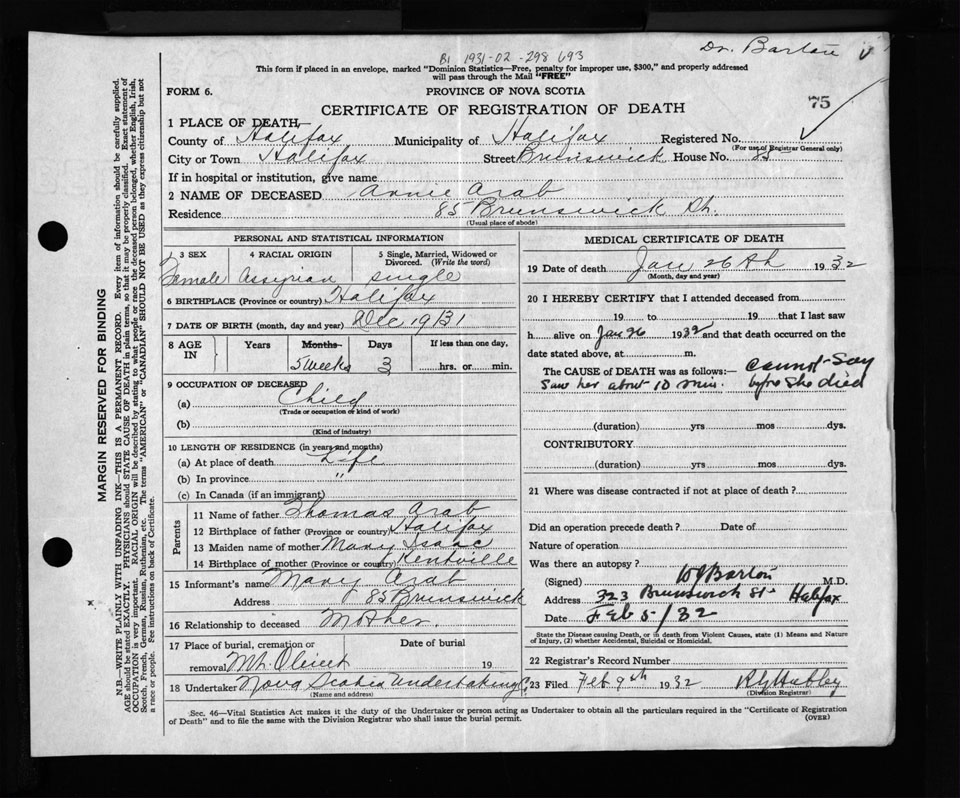 Dr. Barton
BI 1931-02-298 693
This form if placed in an envelope, marked "Dominion Statistics—Free, penalty for improper use, $300," and properly addressed
will pass through the Mail "FREE"
FORM 6.
PROVINCE OF NOVA SCOTIA
75
CERTIFICATE OF REGISTRATION OF DEATH
1 PLACE OF DEATH—
County of Halifax Municipality of Halifax Registered No.
(For use of Registrar General only)
City or Town Halifax Street Brunswick House No. 85
If in hospital or institution, give name
2 NAME OF DECEASED Annie Arab
Residence 85 Brunswick St.
(Usual place of abode)
PERSONAL AND STATISTICAL INFORMATION
3 SEX 4 RACIAL ORIGIN 5 Single, Married, Widowed or Divorced. (Write the word)
Female Assyrian single
6 BIRTHPLACE (Province or country) Halifax
7 DATE OF BIRTH (month, day and year) Dec 19/31
8 AGE IN Years Months Days If less than one day,
5 weeks 3 hrs. or min.
9 OCCUPATION OF DECEASED
(a) Child
(Trade or occupation or kind of work)
(b)
(Kind of industry)
10 LENGTH OF RESIDENCE (in years and months)
(a) At place of death Life
(b) In province "
(c) In Canada (if an immigrant)
Parents
11 Name of father Thomas Arab
12 Birthplace of father (Province or country) Halifax
13 Maiden name of mother Mary Isaac
14 Birthplace of mother (Province or country) Kentville
15 Informant's name Mary Arab
Address 85 Brunswick
16 Relationship to deceased Mother.
17 Place of burial, cremation or Date of burial
removal Mt. Olivet 19
18 Undertaker Nova Scotia Undertaking Co.
(Name and address)
MEDICAL CERTIFICATE OF DEATH
19 Date of death Jan 26th 1932
(Month, day and year)
20 I HEREBY CERTIFY that I attended deceased from
19 to 19 that I last saw
h alive on Jan 26 1932 and that death occurred on the
date stated above, at m.
The CAUSE of DEATH was as follows:— cannot say
Saw her about 10 min. before she died
(duration) yrs mos dys.
CONTRIBUTORY
(duration) yrs mos dys.
21 Where was disease contracted if not at place of death?
Did an operation precede death? Date of
Nature of operation
Was there an autopsy?
(Signed) Barton M.D.
Address 323 Brunswick St- Halifax
Date Feb 5/32
State the Disease causing Death, or in death from Violent Causes, state (1) Means and Nature
of Injury, (2) whether Accidental, Suicidal or Homicidal.
22 Registrar's Record Number
23 Filed Feb 9th 1932
(Division Registrar)
Sec. 46—Vital Statistics Act makes it the duty of the Undertaker or person acting as Undertaker to obtain all the particulars required in the "Certificate of Registration
of Death" and to file the same with the Division Registrar who shall issue the burial permit.
(OVER)
MARGIN RESERVED FOR BINDING
N.B.—WRITE PLAINLY WITH UNFADING INK—THIS IS A PERMANENT RECORD. Every item of information should be carefully supplied.
AGE should be stated EXACTLY. PHYSICIANS should STATE CAUSE OF DEATH in plain terms, so that it may be properly classified. Exact statement of
OCCUPATION is very important. RACIAL ORIGIN will be described by stating to what people or race the deceased person belonged, whether English, Irish,
Scotch, French, German, Russian, Ruthenian, etc. The terms "AMERICAN" or "CANADIAN" SHOULD NOT BE USED as they express citizenship but not
a race or people. Fee instructions on back of Certificate.